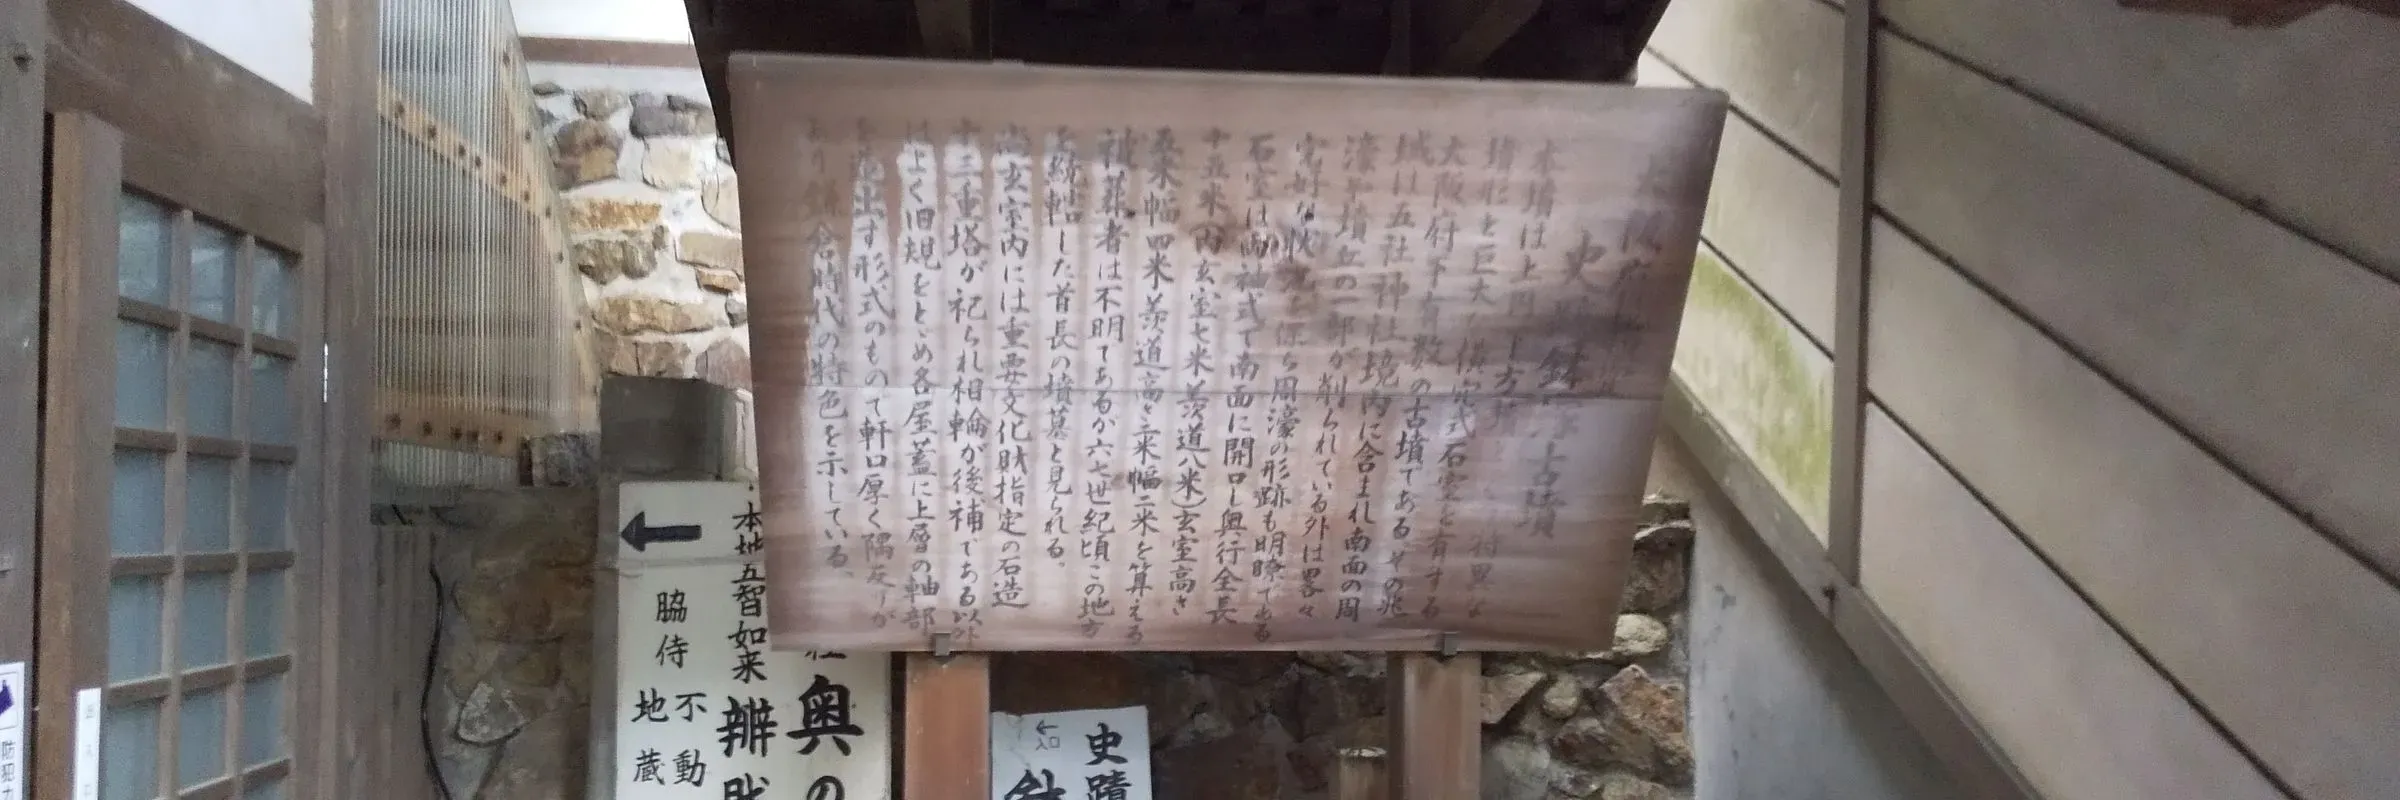 大阪府
史蹟 鉢塚古墳
本墳は上円下方墳という特異な
墳形と巨大な横穴式石室を有する
大阪府下有数の古墳であるその兆
域は五社神社境内に含まれ南面の周
濠と墳丘の一部が削られている外は畧々
完好な状況を保ち周濠の形跡も明瞭である
石室は両袖式で南面に開口し奥行全長
十五米(内玄室七米羨道八米)玄室高さ
五米幅四米羨道高さ二米幅二米を算える
被葬者は不明であるが六七世紀頃この地方
を統轄した首長の墳墓と見られる。
尚玄室内には重要文化財指定の石造
十三重塔が祀られ相輪が後補である以外
はよく旧規をとゞめ各屋蓋に上層の軸部
を造出す形式のもので軒口厚く隅反りが
あり鎌倉時代の特色を示している。
奥の
本地五智如来
辨財
脇侍
不動
地蔵
史蹟
入口
防犯カ